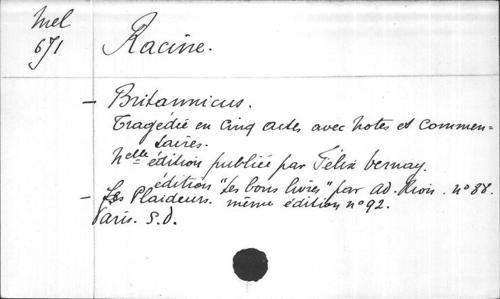 Mel
671
Racine.
– Britannicus.
Tragédie en cinq actes avec notes et commen=
taires.
Nelle édition publiée par Félix Vernay.
édition "Les bons livres" par ad. n° 88.
– Les Plaideurs. même édition n° 92.
Paris. S.D.